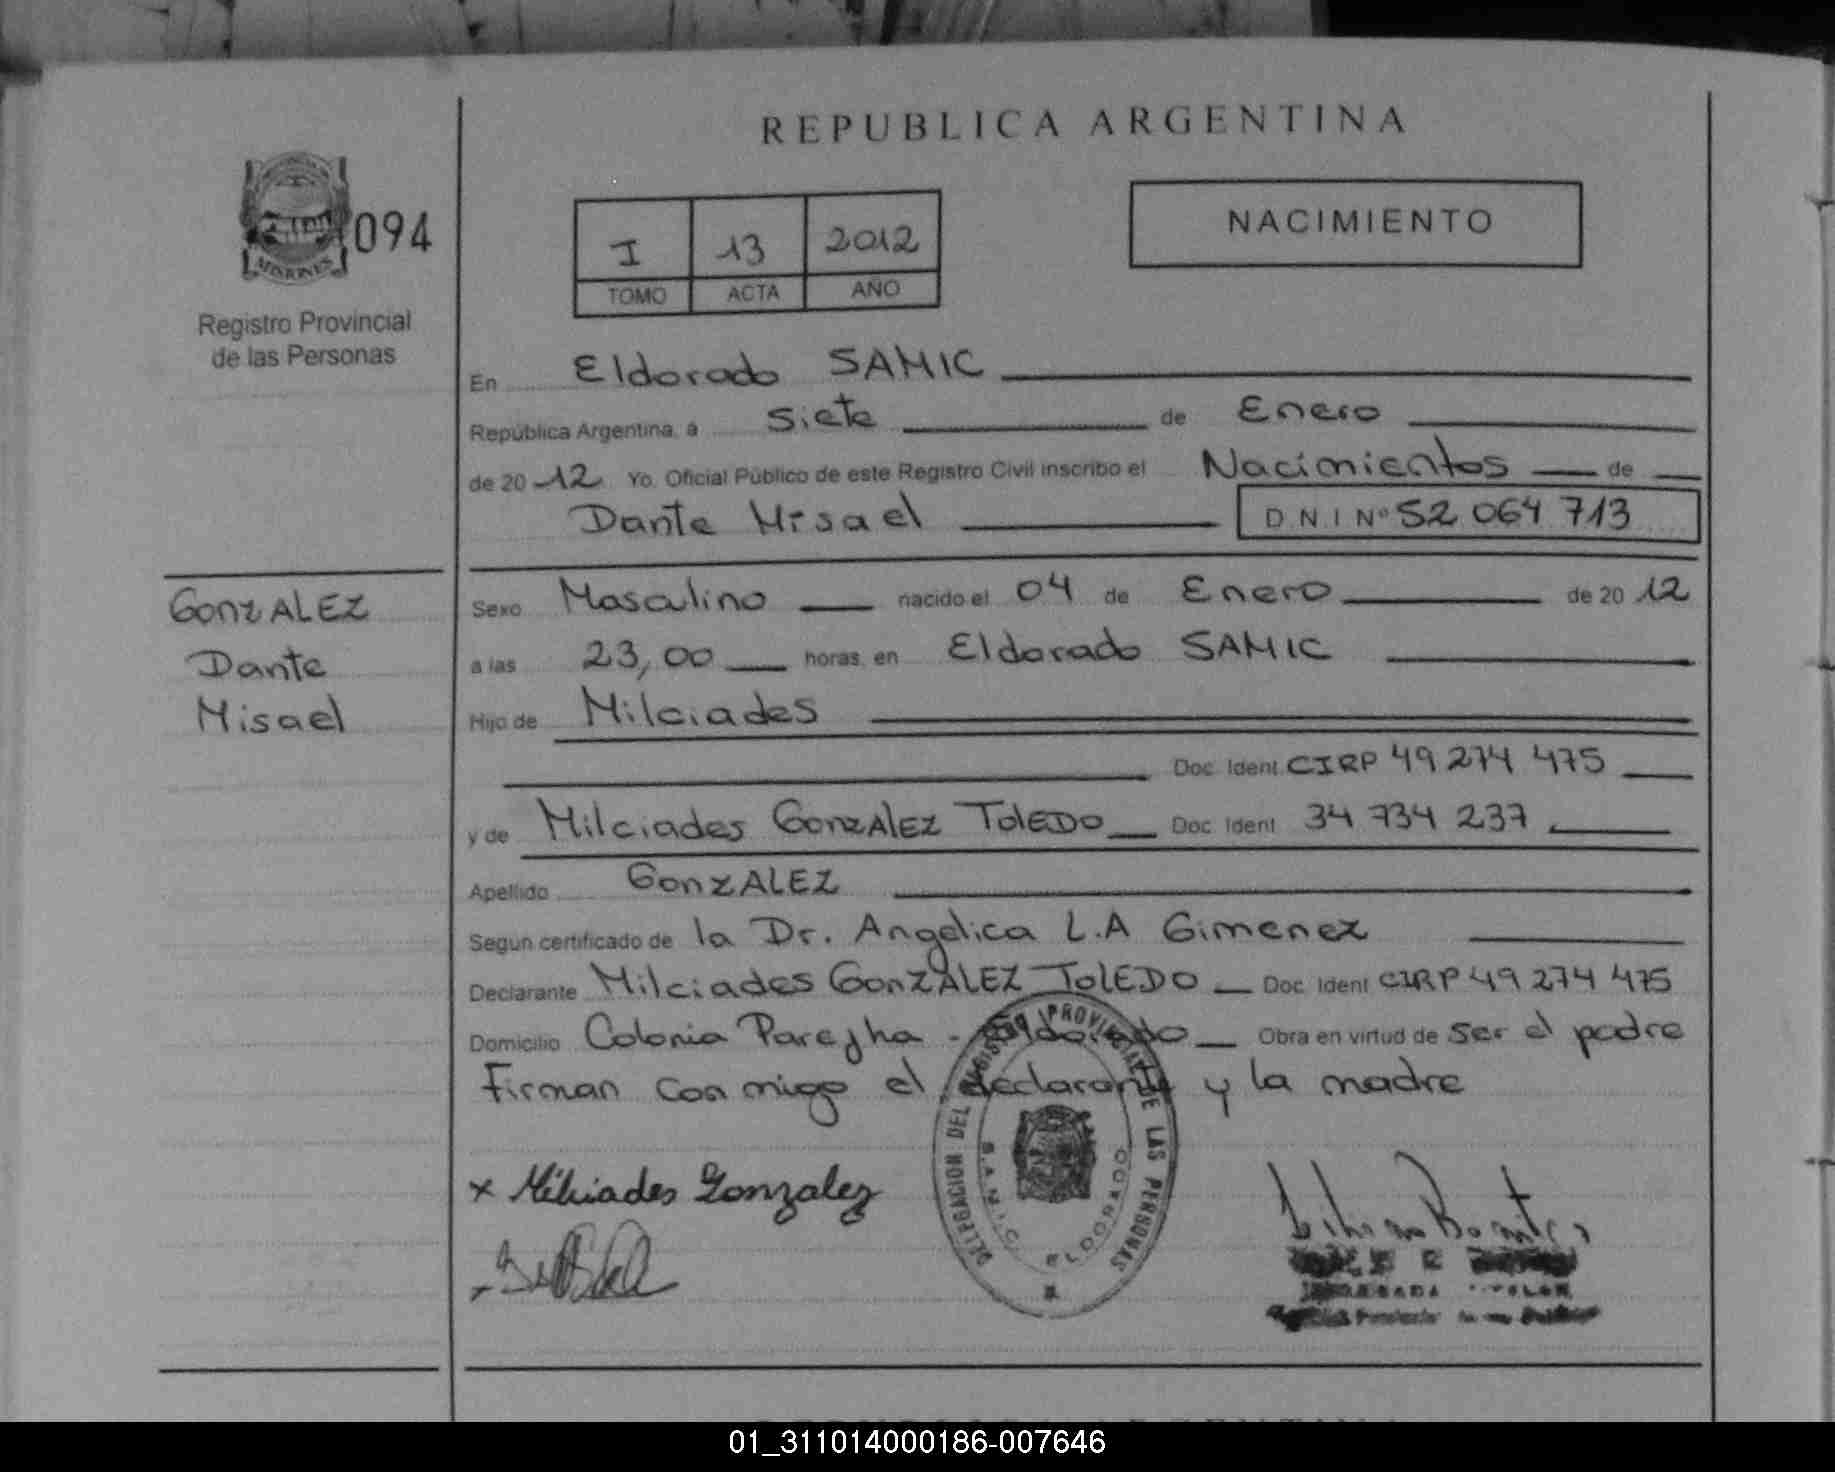 REPUBLICA ARGENTINA
MISIONES
094
Registro Provincial
de las Personas
I 13 2012
TOMO ACTA AÑO
NACIMIENTO
En Eldorado SAMIC
República Argentina, a Siete de Enero
de 2012 Yo. Oficial Público de este Registro Civil inscribo el Nacimientos de
Dante Misael D.N.I Nº 52 064 713
GONZALEZ
Dante
Misael
Sexo Masculino nacido el 04 de Enero de 2012
a las 23,00 horas, en Eldorado SAMIC
Hijo de Milciades
Doc. Ident. CIRP 49 274 475
y de Milciades GONZALEZ TOLEDO Doc. Ident. 34 734 237
Apellido GONZALEZ
Segun certificado de la Dr. Angelica L.A Gimenez
Declarante Milciades GONZALEZ TOLEDO Doc. Ident CIRP 49 274 475
Domicilio Colonia Parejha - Eldorado Obra en virtud de ser el padre
Firman conmigo el declarante y la madre
x Milciades Gonzalez
DELEGACION DEL REGISTRO PROVINCIAL DE LAS PERSONAS
S.A.M.I.C. ELDORADO
01_311014000186-007646